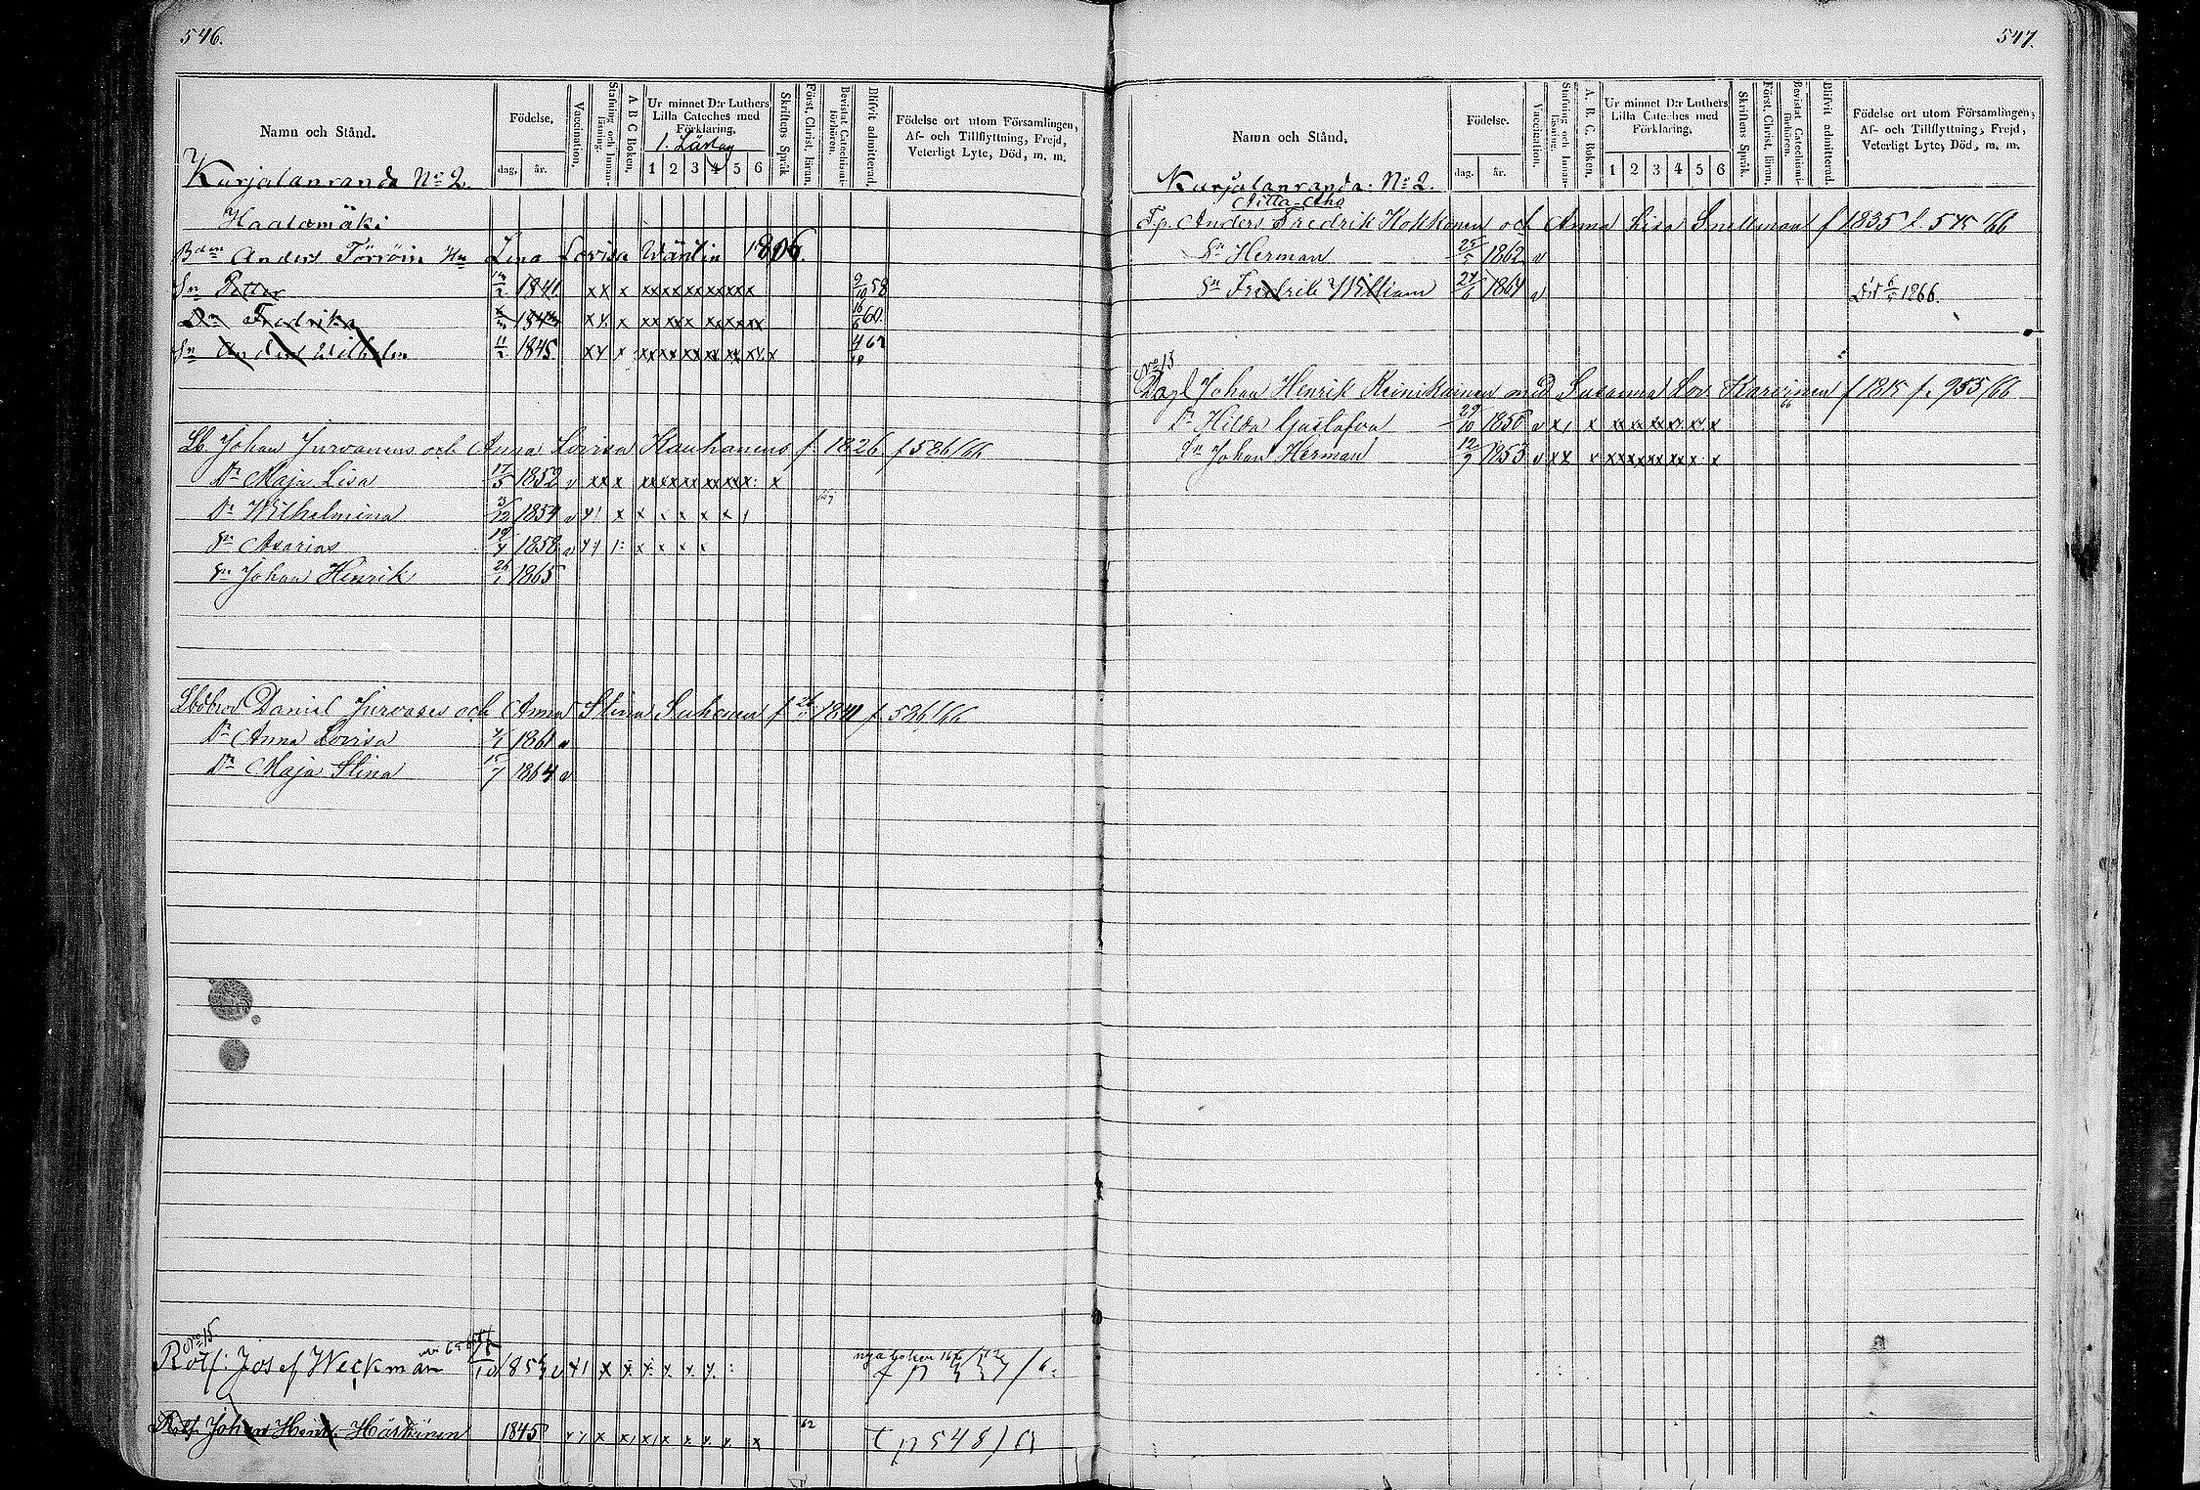 546.
Namn och Stånd.
Födelse.
dag,
år.
Vaccination.
Stafning och Innan-läsning.
A B C Boken,
Ur minnet D:r Luthers Lilla Cateches med Förklaring,
1. Läsläg
1 2 3 4 5 6
Skriftens Språk
Först. Christ. läran.
Bevistat Catechismi-förhören.
Blifvit admitterad.
Födelse ort utom Församlingen, Af- och Tillflyttning, Frejd, Veterligt Lyte, Död, m. m.
Kurjalanranda No 2.
Haalamäki
Anders Törröin Hu Lena Lovisa Wänlin 1806.
Sn Petter 1841 xx x xxxxxxxxxx 9/10 58
Dr Fredrika xx x xx xx xxxxxx 16/6 60.
Sn Anders Wilhelm 11/2 1845 xx x xxxxxxxxx xx x
Lb. Johan Jurvanens och Anna Lovisa Kauhanens f. 1826 f 586/66
Dr Maja Lisa 17/5 1852 v xx x xxxxxxxxxx x
Dr Wilhelmina 3/12 1854 v x x x x x x
Sn Asarias 19/4 1858 v x x x x
Sn Johan Henrik 26/1 1865
Daniel Jurvanes och Anna Stina Suhonen f 1841 f. 586/66
Dr Anna Lovisa 1861 v
Dr Maja Stina 15/7 1864 v
No 15
Rotf: Josef Weckman 185 x x x x x
nya boken
Rotf. Johan Henr. Härkönen 1845 x x x x x x x x 62 t p 548/
547.
Namn och Stånd.
Födelse.
dag.
år.
Vaccination.
Stafning och Innan-läsning.
A. B. C. Boken.
Ur minnet D:r Luthers Lilla Cateches med Förklaring,
1 2 3 4 5 6
Skriftens Språk.
Först. Christ. läran.
Bevistat Catechismi-förhören.
Blifvit admitterad.
Födelse ort utom Församlingen, Af- och Tillflyttning, Frejd, Veterligt Lyte, Död, m. m.
Kurjalanranda: No 2.
Aitta-Aho
Tp. Anders Fredrik Hokkonen och Anna Lisa Snellman f 1835 f. 575/66
Sn Herman 25/5 1862 v
Sn Fredrik William 24/6 1864 v Död 1866.
No 13
Johan Henrik Keinikainen med Susanna Lov. Karvinen f 1815 f. 955/66
66
Dr Hilda Gustafva 29/10 1850 v x x xxxxxxx x
Sn Johan Herman 12/9 1853 v xx x xxxxxxxx x